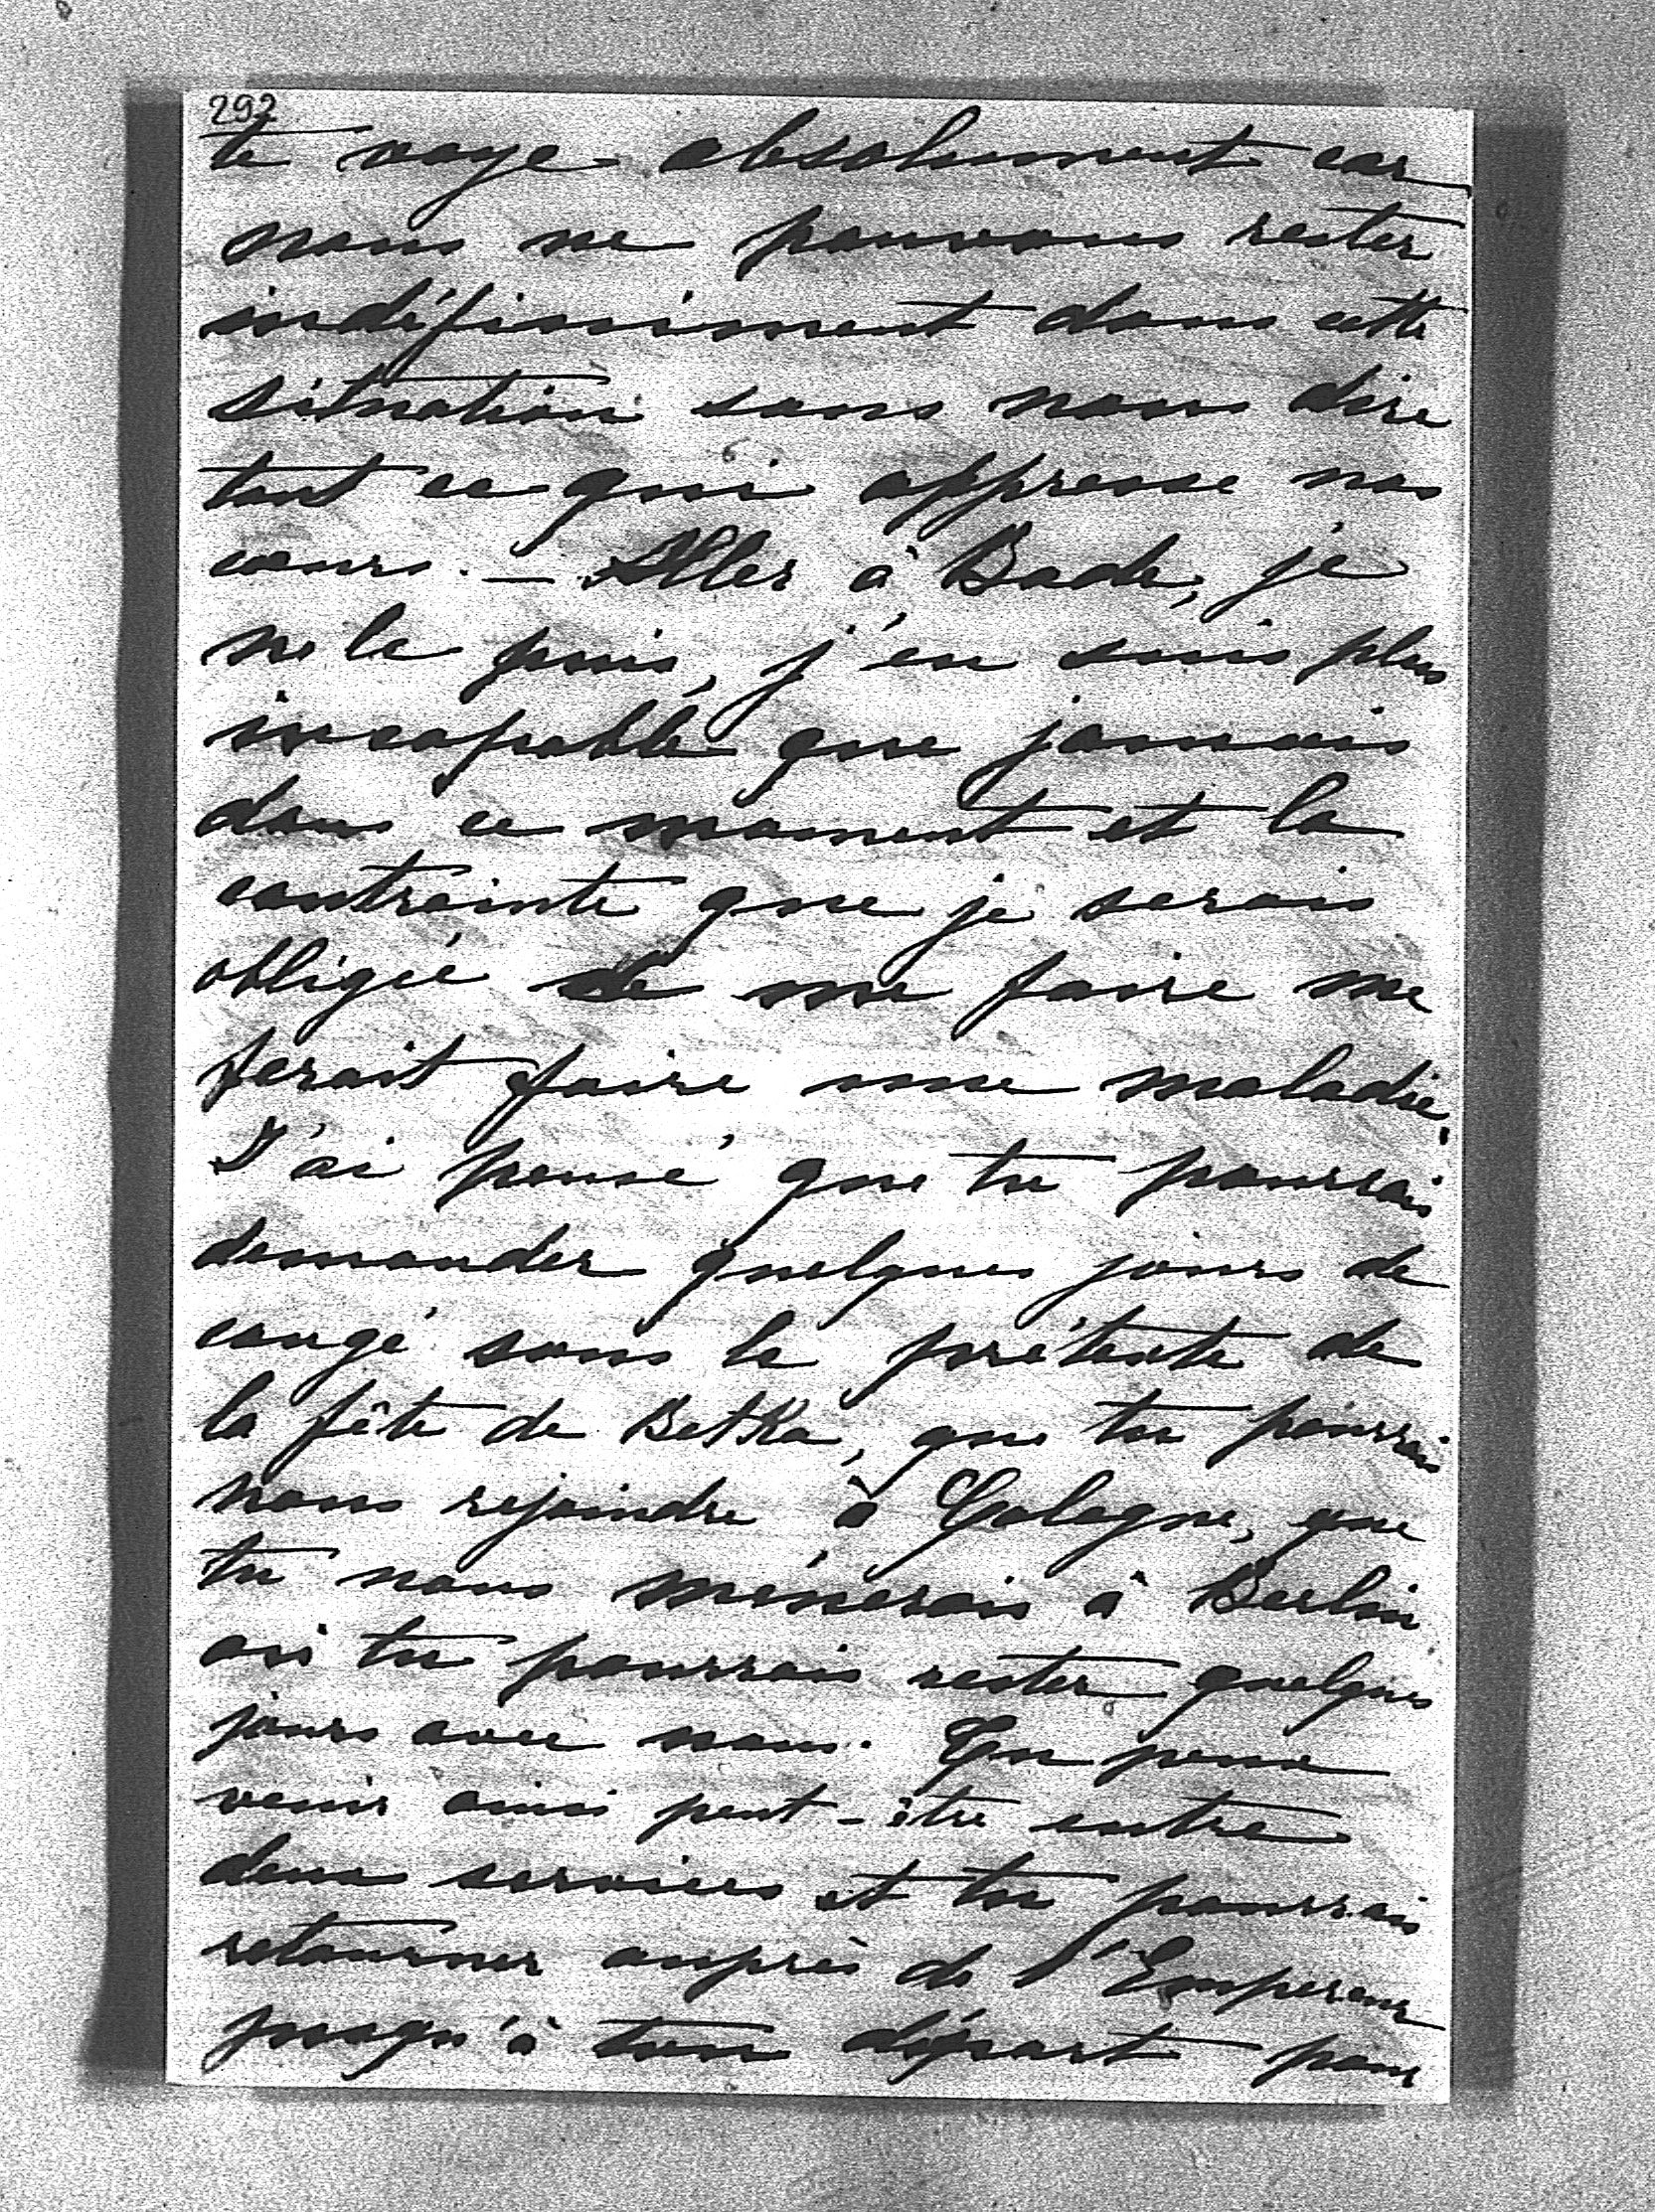 292
te voye absolument car
nous ne pouvons rester
indéfiniment dans cette
situation sans nous dire
tout ce qui oppresse nos
cœurs. — Aller à Bade, je
ne le puis, j'en suis plus
incapable que jamais
dans ce moment et la
contrainte que je serais
obligée de me faire me
ferait faire une maladie.
J'ai pensé que tu pourrais
demander quelques jours de
congé sous le prétexte de
la fête de Betka, que tu pourrais
nous rejoindre à Cologne, que
tu nous mènerais à Berlin
où tu pourrais rester quelques
jours avec nous. Tu peux
venir ainsi peut-être entre
deux services et tu pourrais
retourner auprès de l'Empereur
jusqu'à ton départ pour